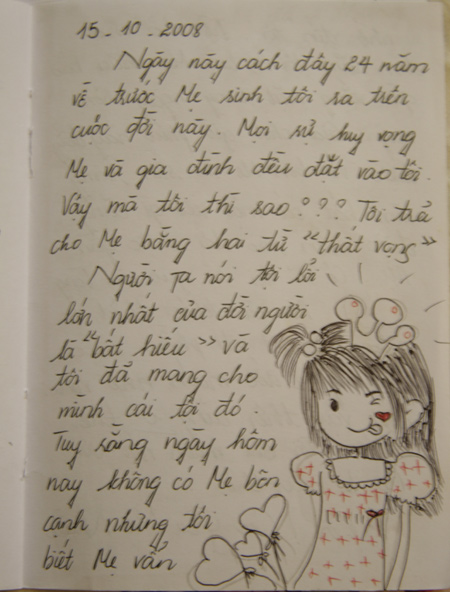 15.10.2008
Ngày này cách đây 24 năm
về trước Mẹ sinh tôi ra trên
cuộc đời này. Mọi sự huy vọng
Mẹ và gia đình đều đặt vào tôi.
Vậy mà tôi thì sao??? Tôi trả
cho Mẹ bằng hai từ "thất vọng"
Người ta nói tội lỗi
lớn nhất của đời người
là "bất hiếu" và
tôi đã mang cho
mình cái tội đó.
Tuy rằng ngày hôm
nay không có Mẹ bên
cạnh nhưng tôi
biết Mẹ vẫn